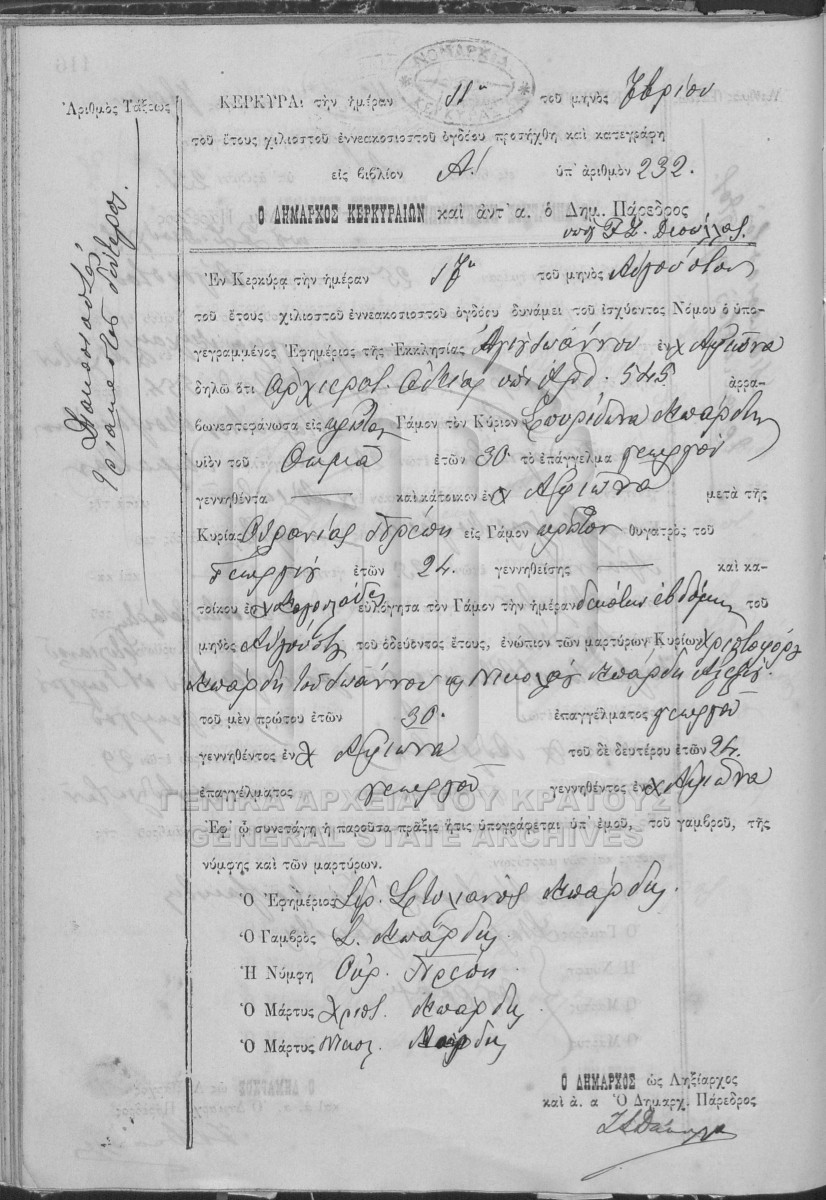 ΝΟΜΑΡΧΙΑ
ΚΕΡΚΥΡΑΣ
Ἀριθμὸς Τάξεως
Διακοσιοστὸς
τριακοστὸς δεύτερος.
ΚΕΡΚΥΡΑι τὴν ἡμέραν 11η τοῦ μηνὸς 7βρίου
τοῦ ἔτους χιλιοστοῦ ἐννεακοσιοστοῦ ὀγδόου προσήχθη καὶ κατεγράφη
εἰς βιβλίον Α! ὑπ' ἀριθμὸν 232.
Ὁ ΔΗΜΑΡΧΟΣ ΚΕΡΚΥΡΑΙΩΝ καὶ ἀντ' α. ὁ Δημ. Πάρεδρος
Ἐν Κερκύρᾳ τὴν ἡμέραν 17η τοῦ μηνὸς Αὐγούστου
τοῦ ἔτους χιλιοστοῦ ἐννεακοσιοστοῦ ὀγδόου δυνάμει τοῦ ἰσχύοντος Νόμου ὁ ὑπο-
γεγραμμένος Ἐφημέριος τῆς Ἐκκλησίας Ἁγίου Ἰωάννου ἐν χ Ἀφιῶνα
δηλῶ ὅτι ἀρχιερατ. ἀδείᾳ ὑπ' ἀριθ. 545 ἀρρα-
βωνεστεφάνωσα εἰς πρῶτον Γάμον τὸν Κύριον Σπυρίδωνα Μπάρδη
υἱὸν τοῦ Θωμᾶ ἐτῶν 30 τὸ ἐπάγγελμα γεωργοῦ
γεννηθέντα — καὶ κάτοικον ἐν χ Ἀφιῶνα μετὰ τῆς
Κυρίας Οὐρανίας εἰς Γάμον πρῶτον θυγατρὸς τοῦ
Γεωργίου ἐτῶν 24. γεννηθείσης — καὶ κα-
τοίκου ἐν χ εὐλόγησα τὸν Γάμον τὴν ἡμέραν δεκάτην ἑβδόμην τοῦ
μηνὸς Αὐγούστου τοῦ ὁδεύοντος ἔτους, ἐνώπιον τῶν μαρτύρων Κυρίων Χριστοφόρου
Μπάρδη τοῦ Ἰωάννου καὶ Νικολάου Μπάρδη
τοῦ μὲν πρώτου ἐτῶν 30. ἐπαγγέλματος γεωργοῦ
γεννηθέντος ἐν χ Ἀφιῶνα τοῦ δὲ δευτέρου ἐτῶν 24.
ἐπαγγέλματος γεωργοῦ γεννηθέντος ἐν χ Ἀφιῶνα
ΓΕΝΙΚΑ ΑΡΧΕΙΑ ΤΟΥ ΚΡΑΤΟΥΣ
Ἐφ' ᾧ συνετάγη ἡ παροῦσα πρᾶξις ἥτις ὑπογράφεται ὑπ' ἐμοῦ, τοῦ γαμβροῦ, τῆς
GENERAL STATE ARCHIVES
νύμφης καὶ τῶν μαρτύρων.
Ὁ Ἐφημέριος Ἱερ. Στυλιανὸς Μπάρδης.
Ὁ Γαμβρὸς Σ. Μπάρδης.
Ἡ Νύμφη Οὐρ.
Ὁ Μάρτυς Χριστ. Μπάρδης
Ὁ Μάρτυς Νικολ. Μπάρδης
Ὁ ΔΗΜΑΡΧΟΣ ὡς Ληξίαρχος
καὶ ἀ. α Ὁ Δημαρχ. Πάρεδρος